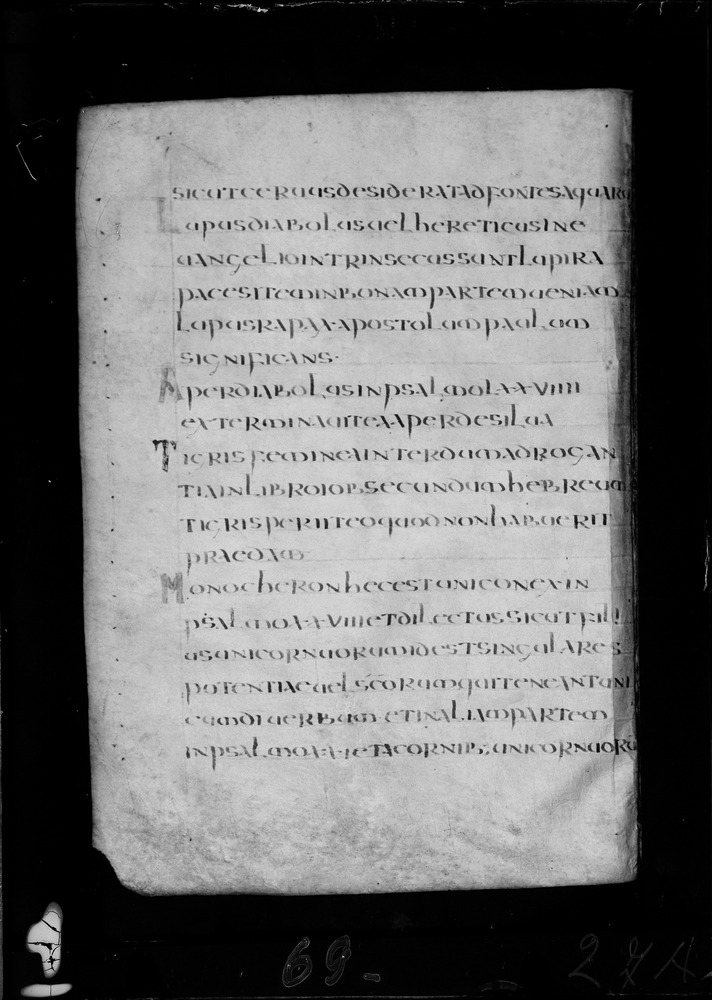 sicut ceruus desiderat ad fontes aquaru
Lupus diabolus uel hereticus in e
uangelio intrinsecus sunt lupi ra
paces item in bonam partem ueniam
lupus rapax apostolum paulum
significans·
Aper diabolus in psalmo LXXVIIII
exterminauit ea aper de silua
Tigris femineа interdum adrogan
tia in libro iob secundum hebreum
tigris periit eo quod non habuerit
praedam
Monocheron hec est unicon ex in
psalmo XXVIII et dilectus sicut fili
us unicornuorum id est singulares
potentiae uel scorum qui teneant uni
cum di uerbum et in aliam partem
in psalmo XXI et a cornib; unicornuoru
69-
27A